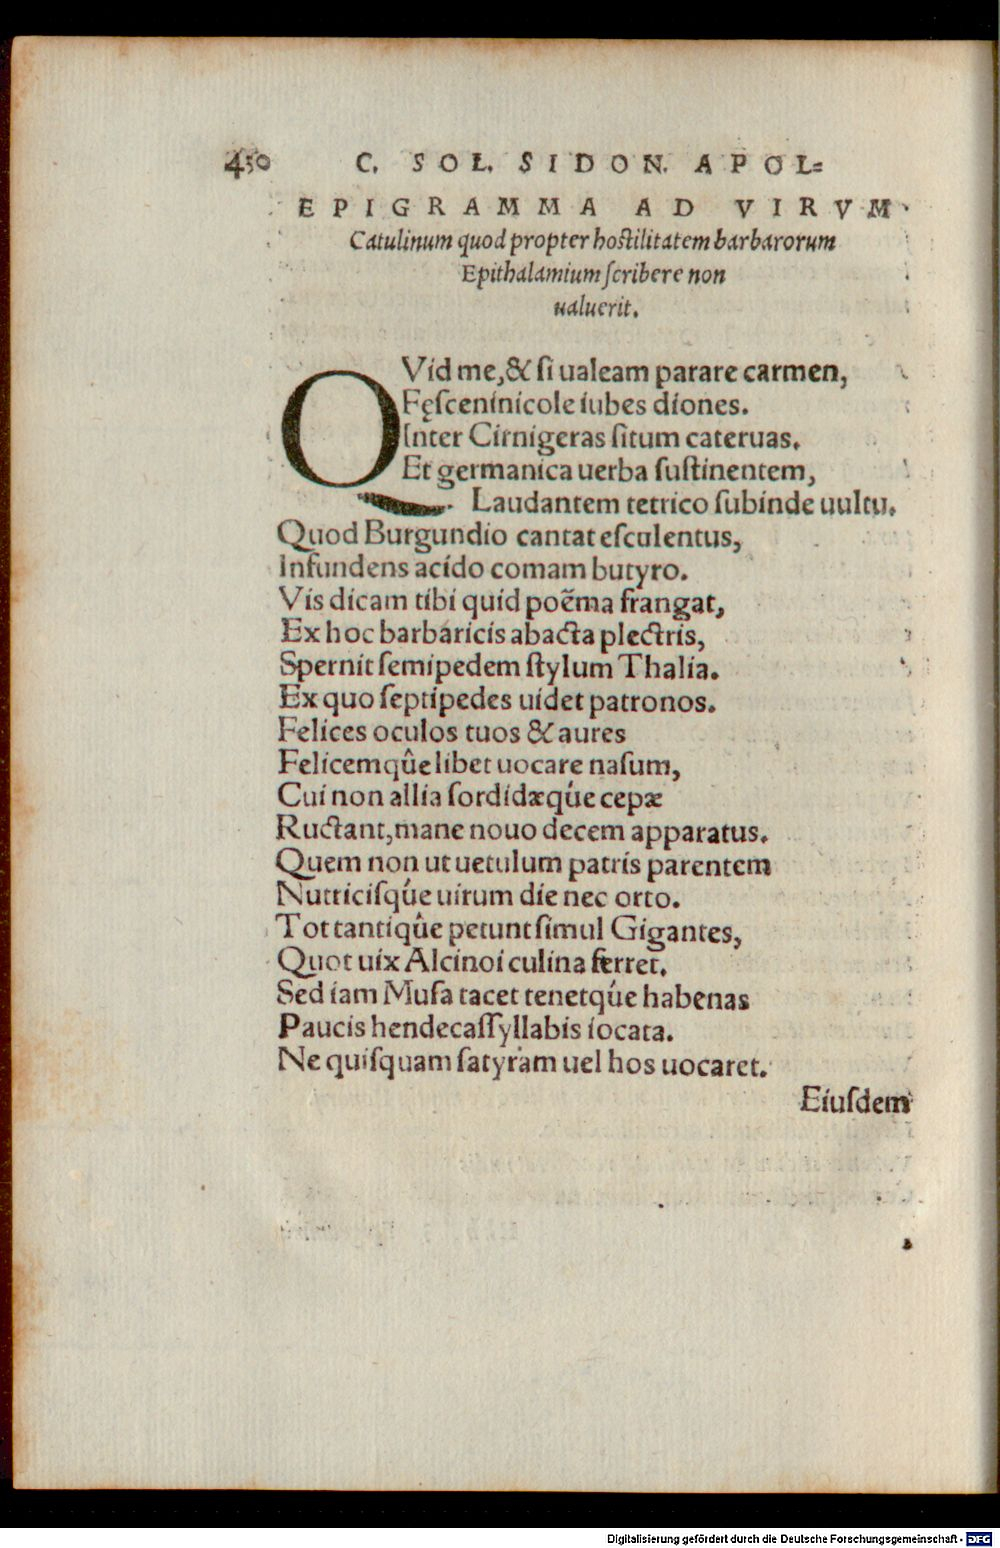 450 C. SOL. SIDON. APOL=
EPIGRAMMA AD VIRVM
Catulinum quod propter hostilitatem barbarorum
Epithalamium scribere non
ualuerit.
QVid me, & si ualeam parare carmen,
Fęscenínicole iubes díones.
Inter Cirnigeras situm cateruas.
Et germanica uerba sustinentem,
Laudantem tetrico subinde uultu.
Quod Burgundio cantat esculentus,
Infundens acido comam butyro.
Vis dicam tibi quid poẽma frangat,
Ex hoc barbaricis abacta plectris,
Spernit semipedem stylum Thalia.
Ex quo septipedes uidet patronos.
Felices oculos tuos & aures
Felicemq́ue libet uocare nasum,
Cui non allia sordidæq́ue cepæ
Ructant, mane nouo decem apparatus.
Quem non ut uetulum patris parentem
Nutricisq́ue uirum die nec orto.
Tot tantiq́ue petunt simul Gigantes,
Quot uix Alcinoi culina ferret.
Sed iam Musa tacet tenetq́ue habenas
Paucis hendecassyllabis iocata.
Ne quisquam satyram uel hos uocaret.
Eiusdem
Digitalisierung gefördert durch die Deutsche Forschungsgemeinschaft - DFG